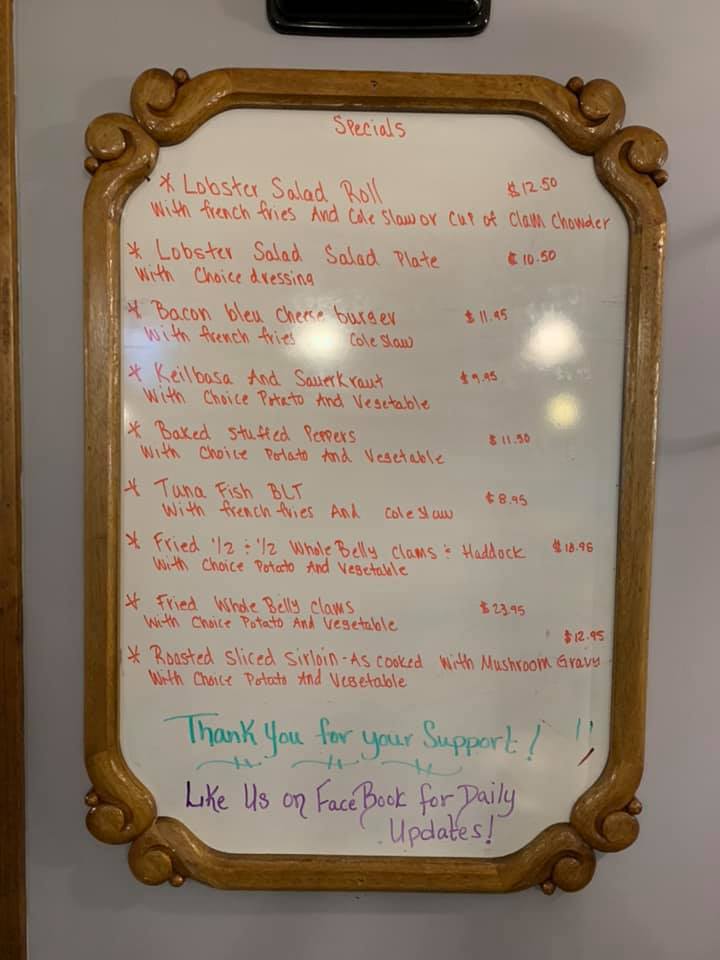 Specials
* Lobster Salad Roll $12.50
With french fries And Cole Slaw or Cup of Clam Chowder
* Lobster Salad Salad Plate $10.50
With Choice dressing
* Bacon bleu cheese burger $11.95
With french fries Cole Slaw
* Keilbasa And Sauerkraut $9.95
With Choice Potato And Vegetable
* Baked Stuffed Peppers $11.50
With Choice Potato And Vegetable
* Tuna Fish BLT $8.95
With french fries And Cole Slaw
* Fried 1/2 & 1/2 Whole Belly Clams & Haddock $18.95
With Choice Potato And Vegetable
* Fried Whole Belly Clams $23.95
With Choice Potato And Vegetable
$12.95
* Roasted Sliced Sirloin - As cooked With Mushroom Gravy
With Choice Potato And Vegetable
Thank You for your Support! !!
Like Us on FaceBook for Daily
Updates!